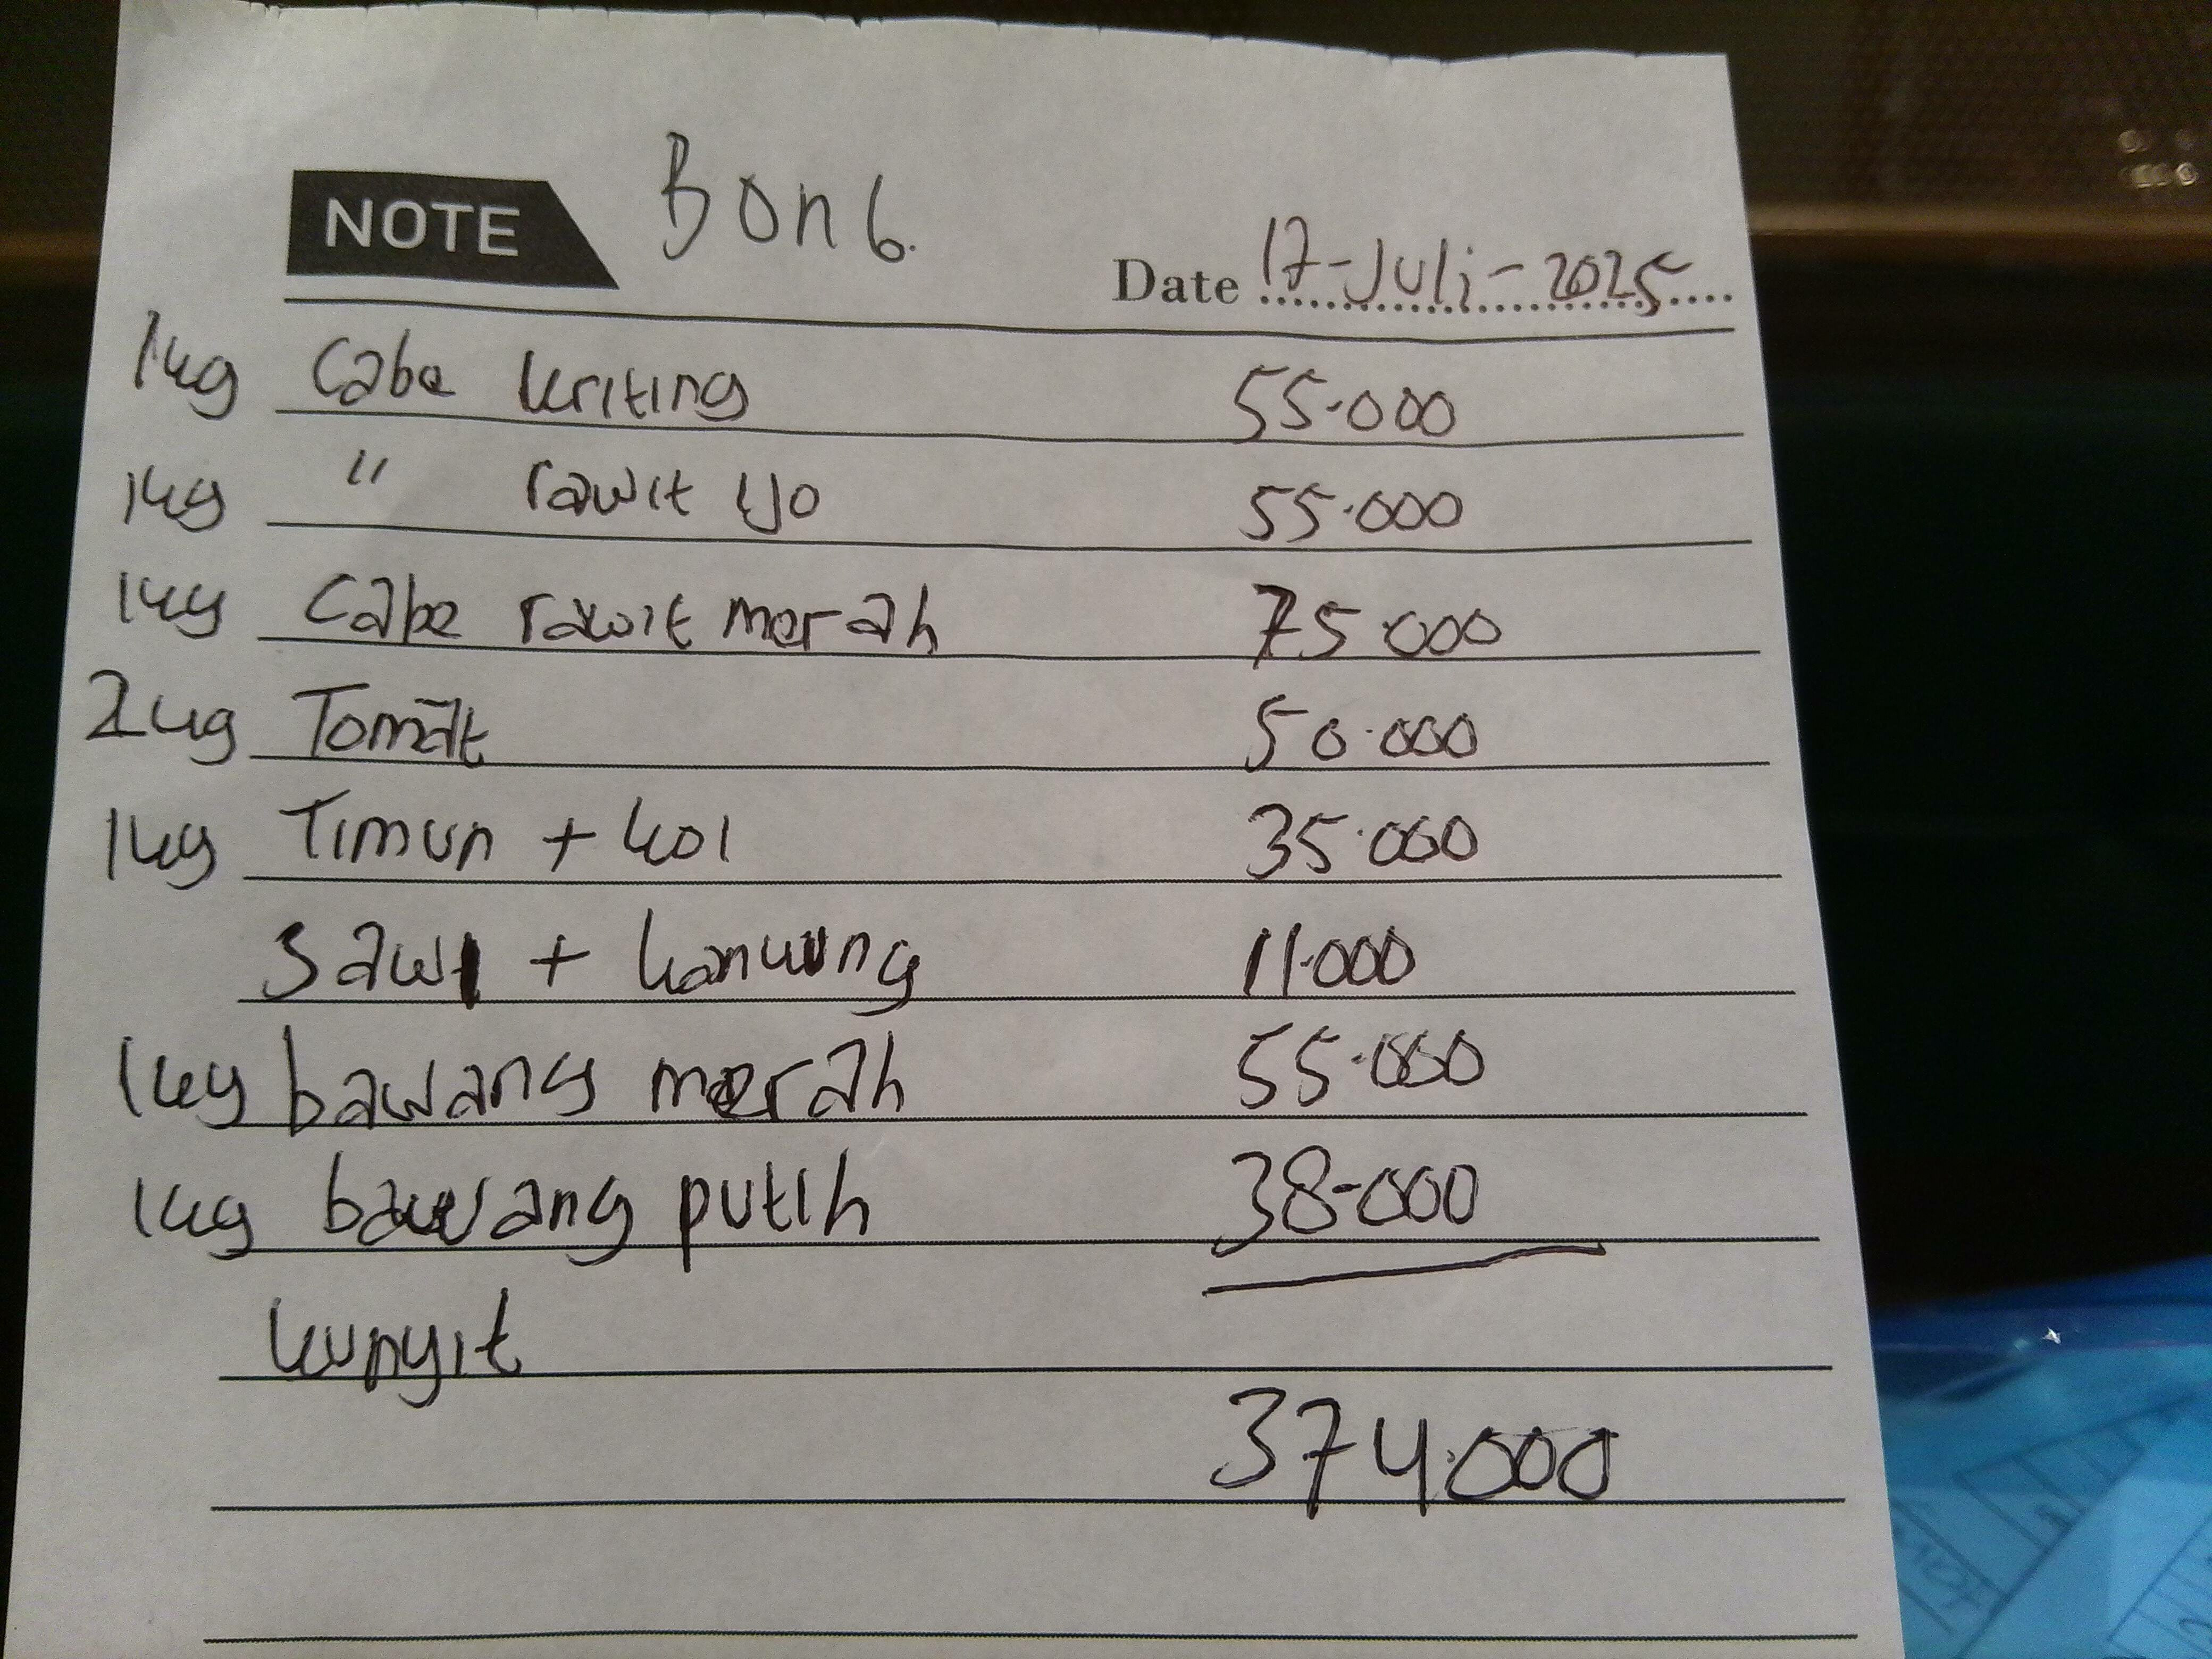 NOTE Bon 6.
Date 17-Juli-2025
1kg Cabe kriting 55.000
1kg " rawit ijo 55.000
1kg Cabe rawit merah 75.000
2kg Tomat 50.000
1kg Timun + kol 35.000
Sawi + kankung 11.000
1kg bawang merah 55.000
1kg bawang putih 38-000
kunyit
374.000